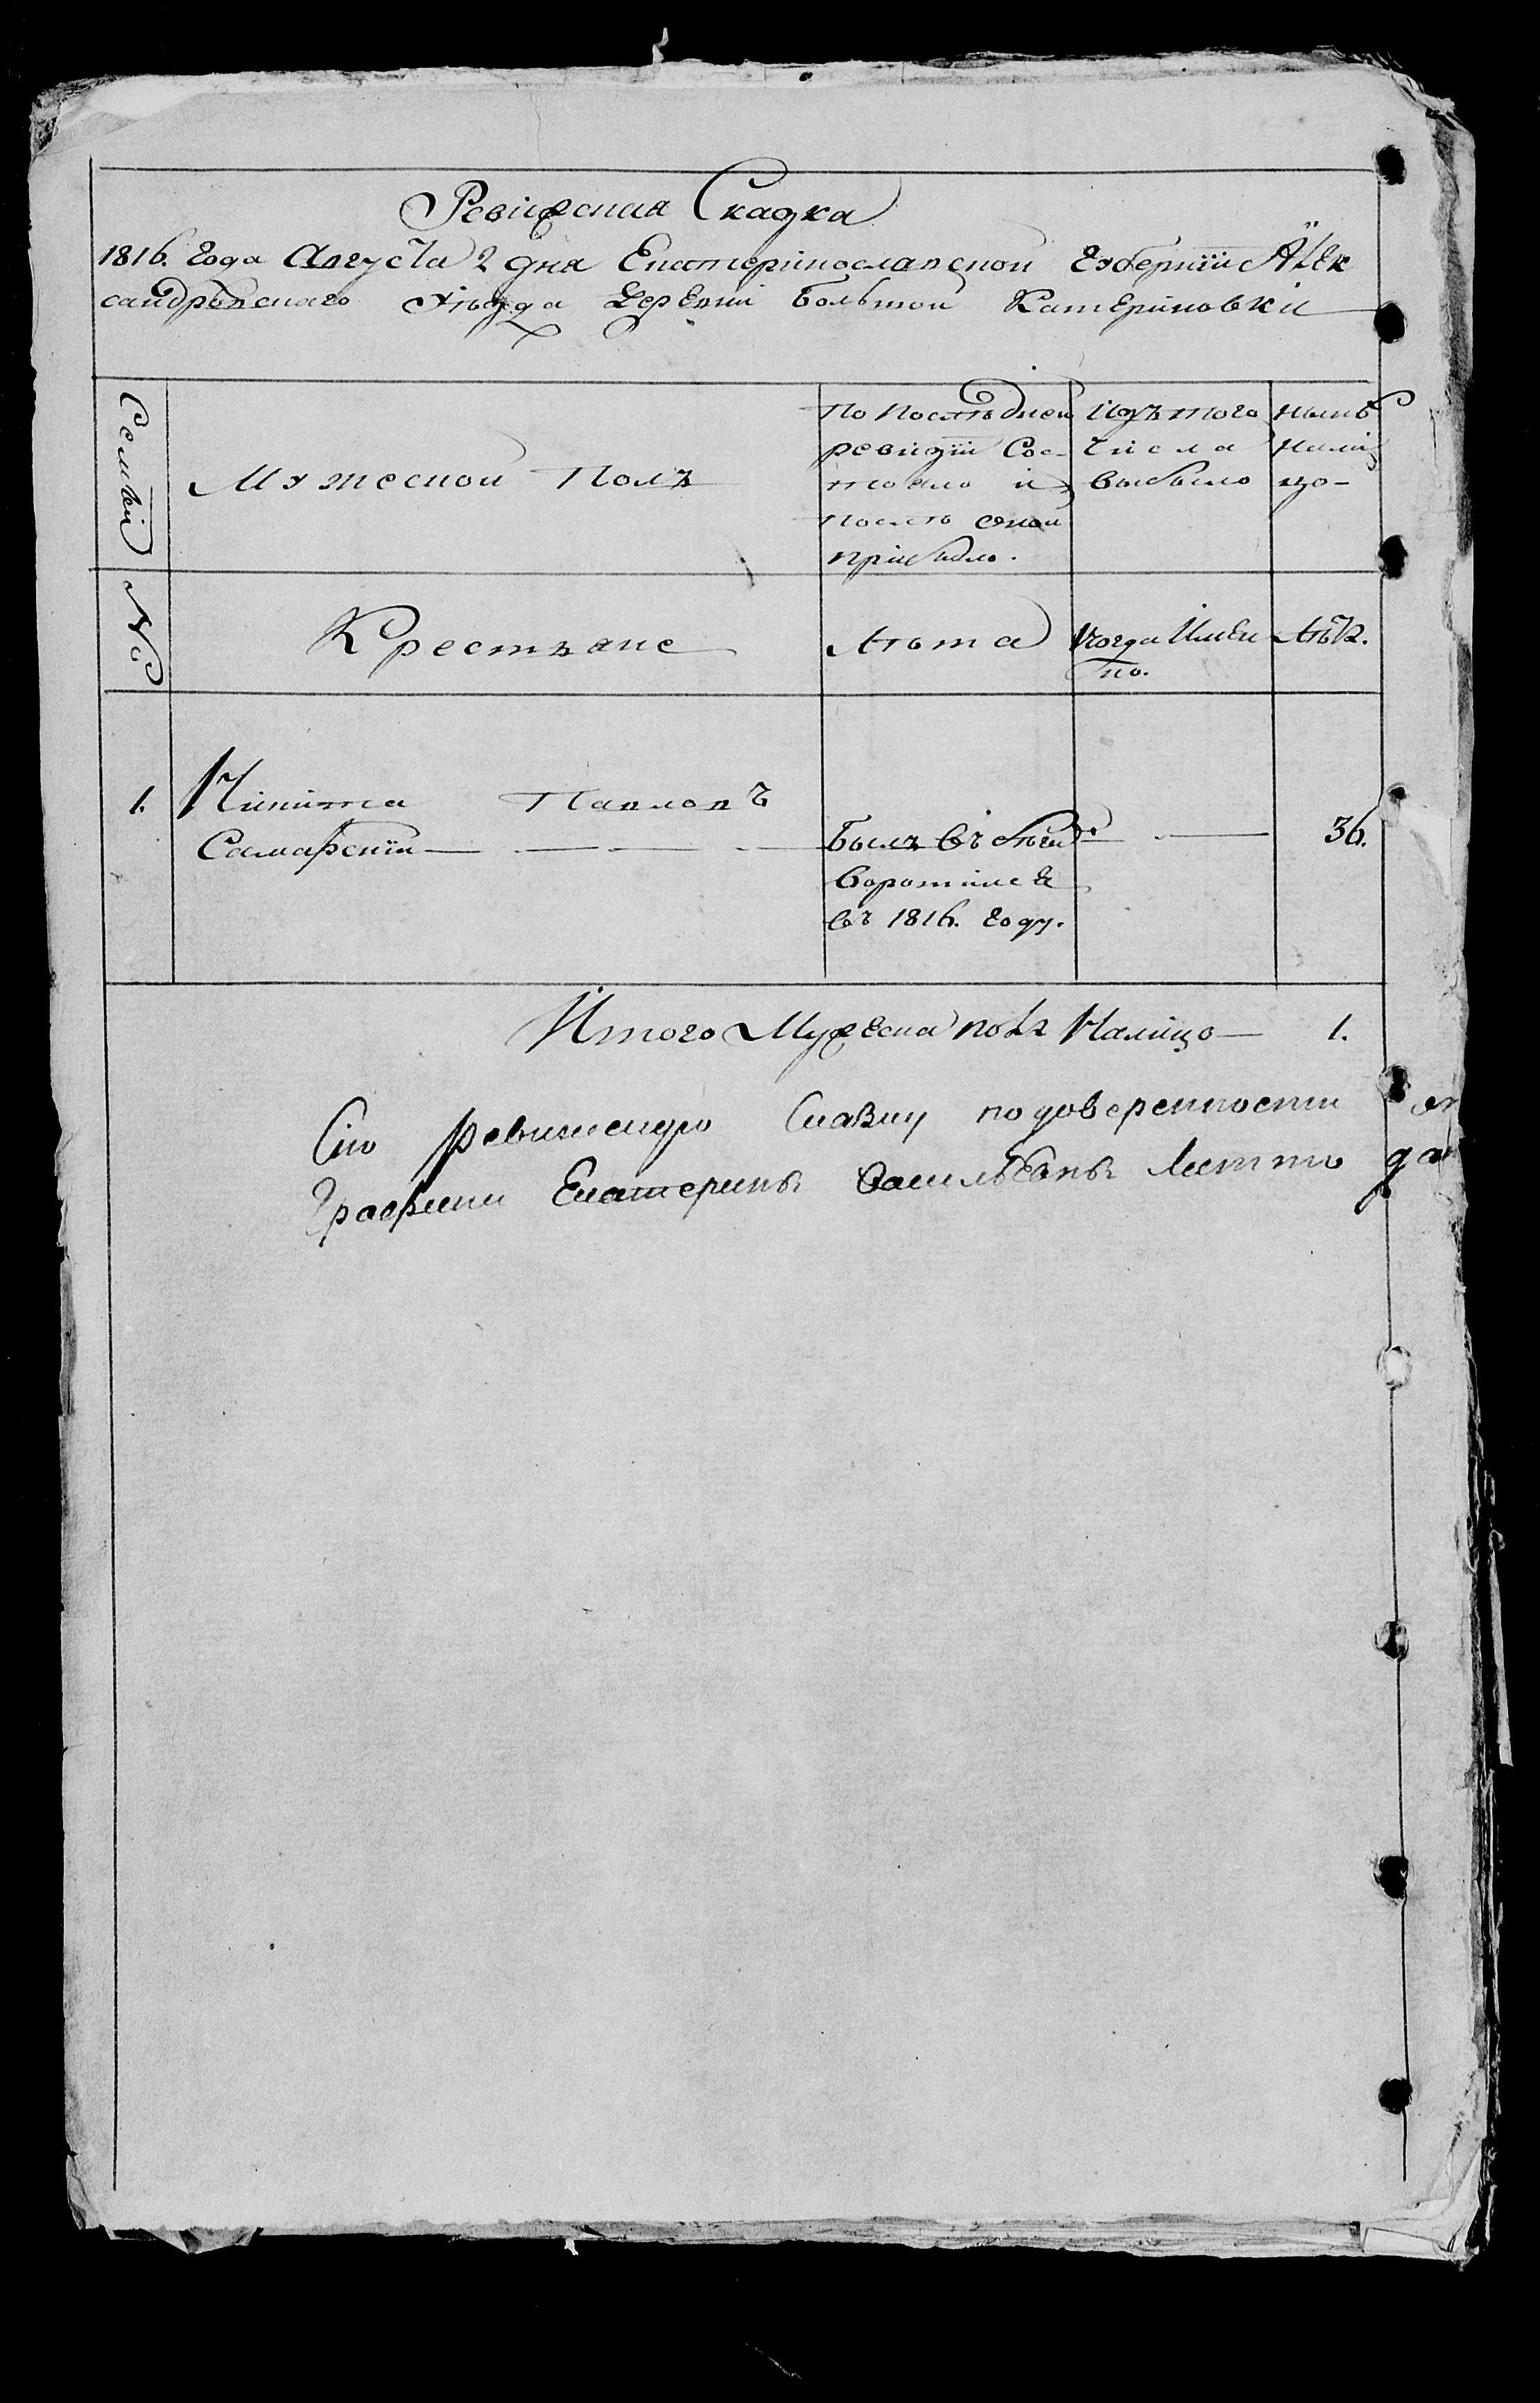 Ревижская Сказка
1816. Года Августа 2 дня Екатеринославской Губерніи Алек
сандровскаго Уѣзда Деревни Большой Катериновки
Семьи
Мужеской Полъ
По Послѣдней
ревизіи Сос-
тояло и
послѣ оной
прибыло.
Изъ того
Числа
Выбыло
Нынѣ
Нали
цо-
№
Крестьяне
Лѣта
Когда Имен
но.
Лѣтъ.
1. Никита Павловъ
Самарскій
Былъ въ бѣгахъ
Воротился
въ 1816. Году.
36.
Итого Мужеска полъ Налицо 1.
Сію ревижскую Сказку по доверенности от
Графини Екатерины Васильевны Литты дан